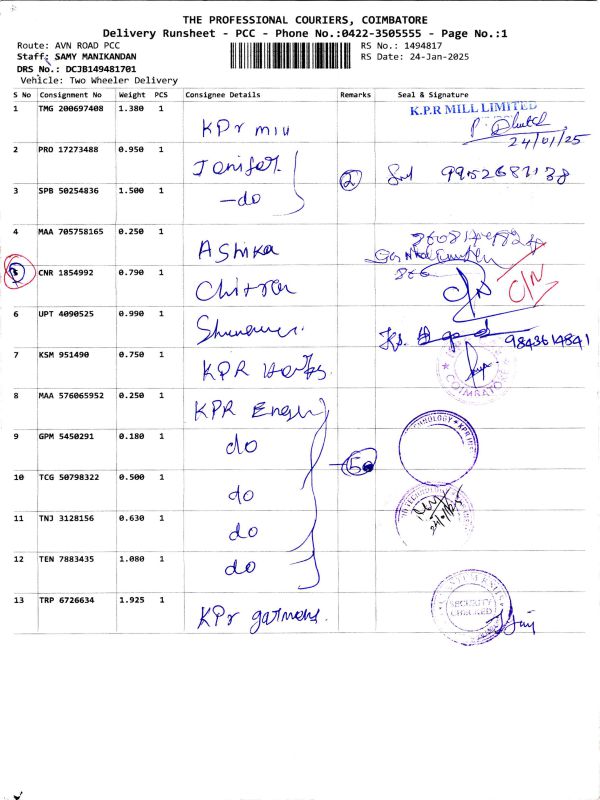 THE PROFESSIONAL COURIERS, COIMBATORE
Delivery Runsheet - PCC - Phone No.:0422-3505555 - Page No.:1
Route: AVN ROAD PCC
RS No.: 1494817
Staff: SAMY MANIKANDAN
RS Date: 24-Jan-2025
DRS No.: DCJB149481701
Vehicle: Two Wheeler Delivery
S No Consignment No Weight PCS Consignee Details Remarks Seal & Signature
1 TMG 200697408 1.380 1 KPr mill K.P.R MILL LIMITED
24/01/25
2 PRO 17273488 0.950 1 Jenifer
2
3 SPB 50254836 1.500 1 -do
4 MAA 705758165 0.250 1 AShika
5 CNR 1854992 0.790 1 Chitran C/N C/N
6 UPT 4090525 0.990 1 9843614841
7 KSM 951490 0.750 1 KPR COIMBATORE
8 MAA 576065952 0.250 1 KPR Engin
9 GPM 5450291 0.180 1 do
5
10 TCG 50798322 0.500 1 do
11 TNJ 3128156 0.630 1 do
12 TEN 7883435 1.080 1 do
13 TRP 6726634 1.925 1 KPr garmens. SECURITY CHECKED